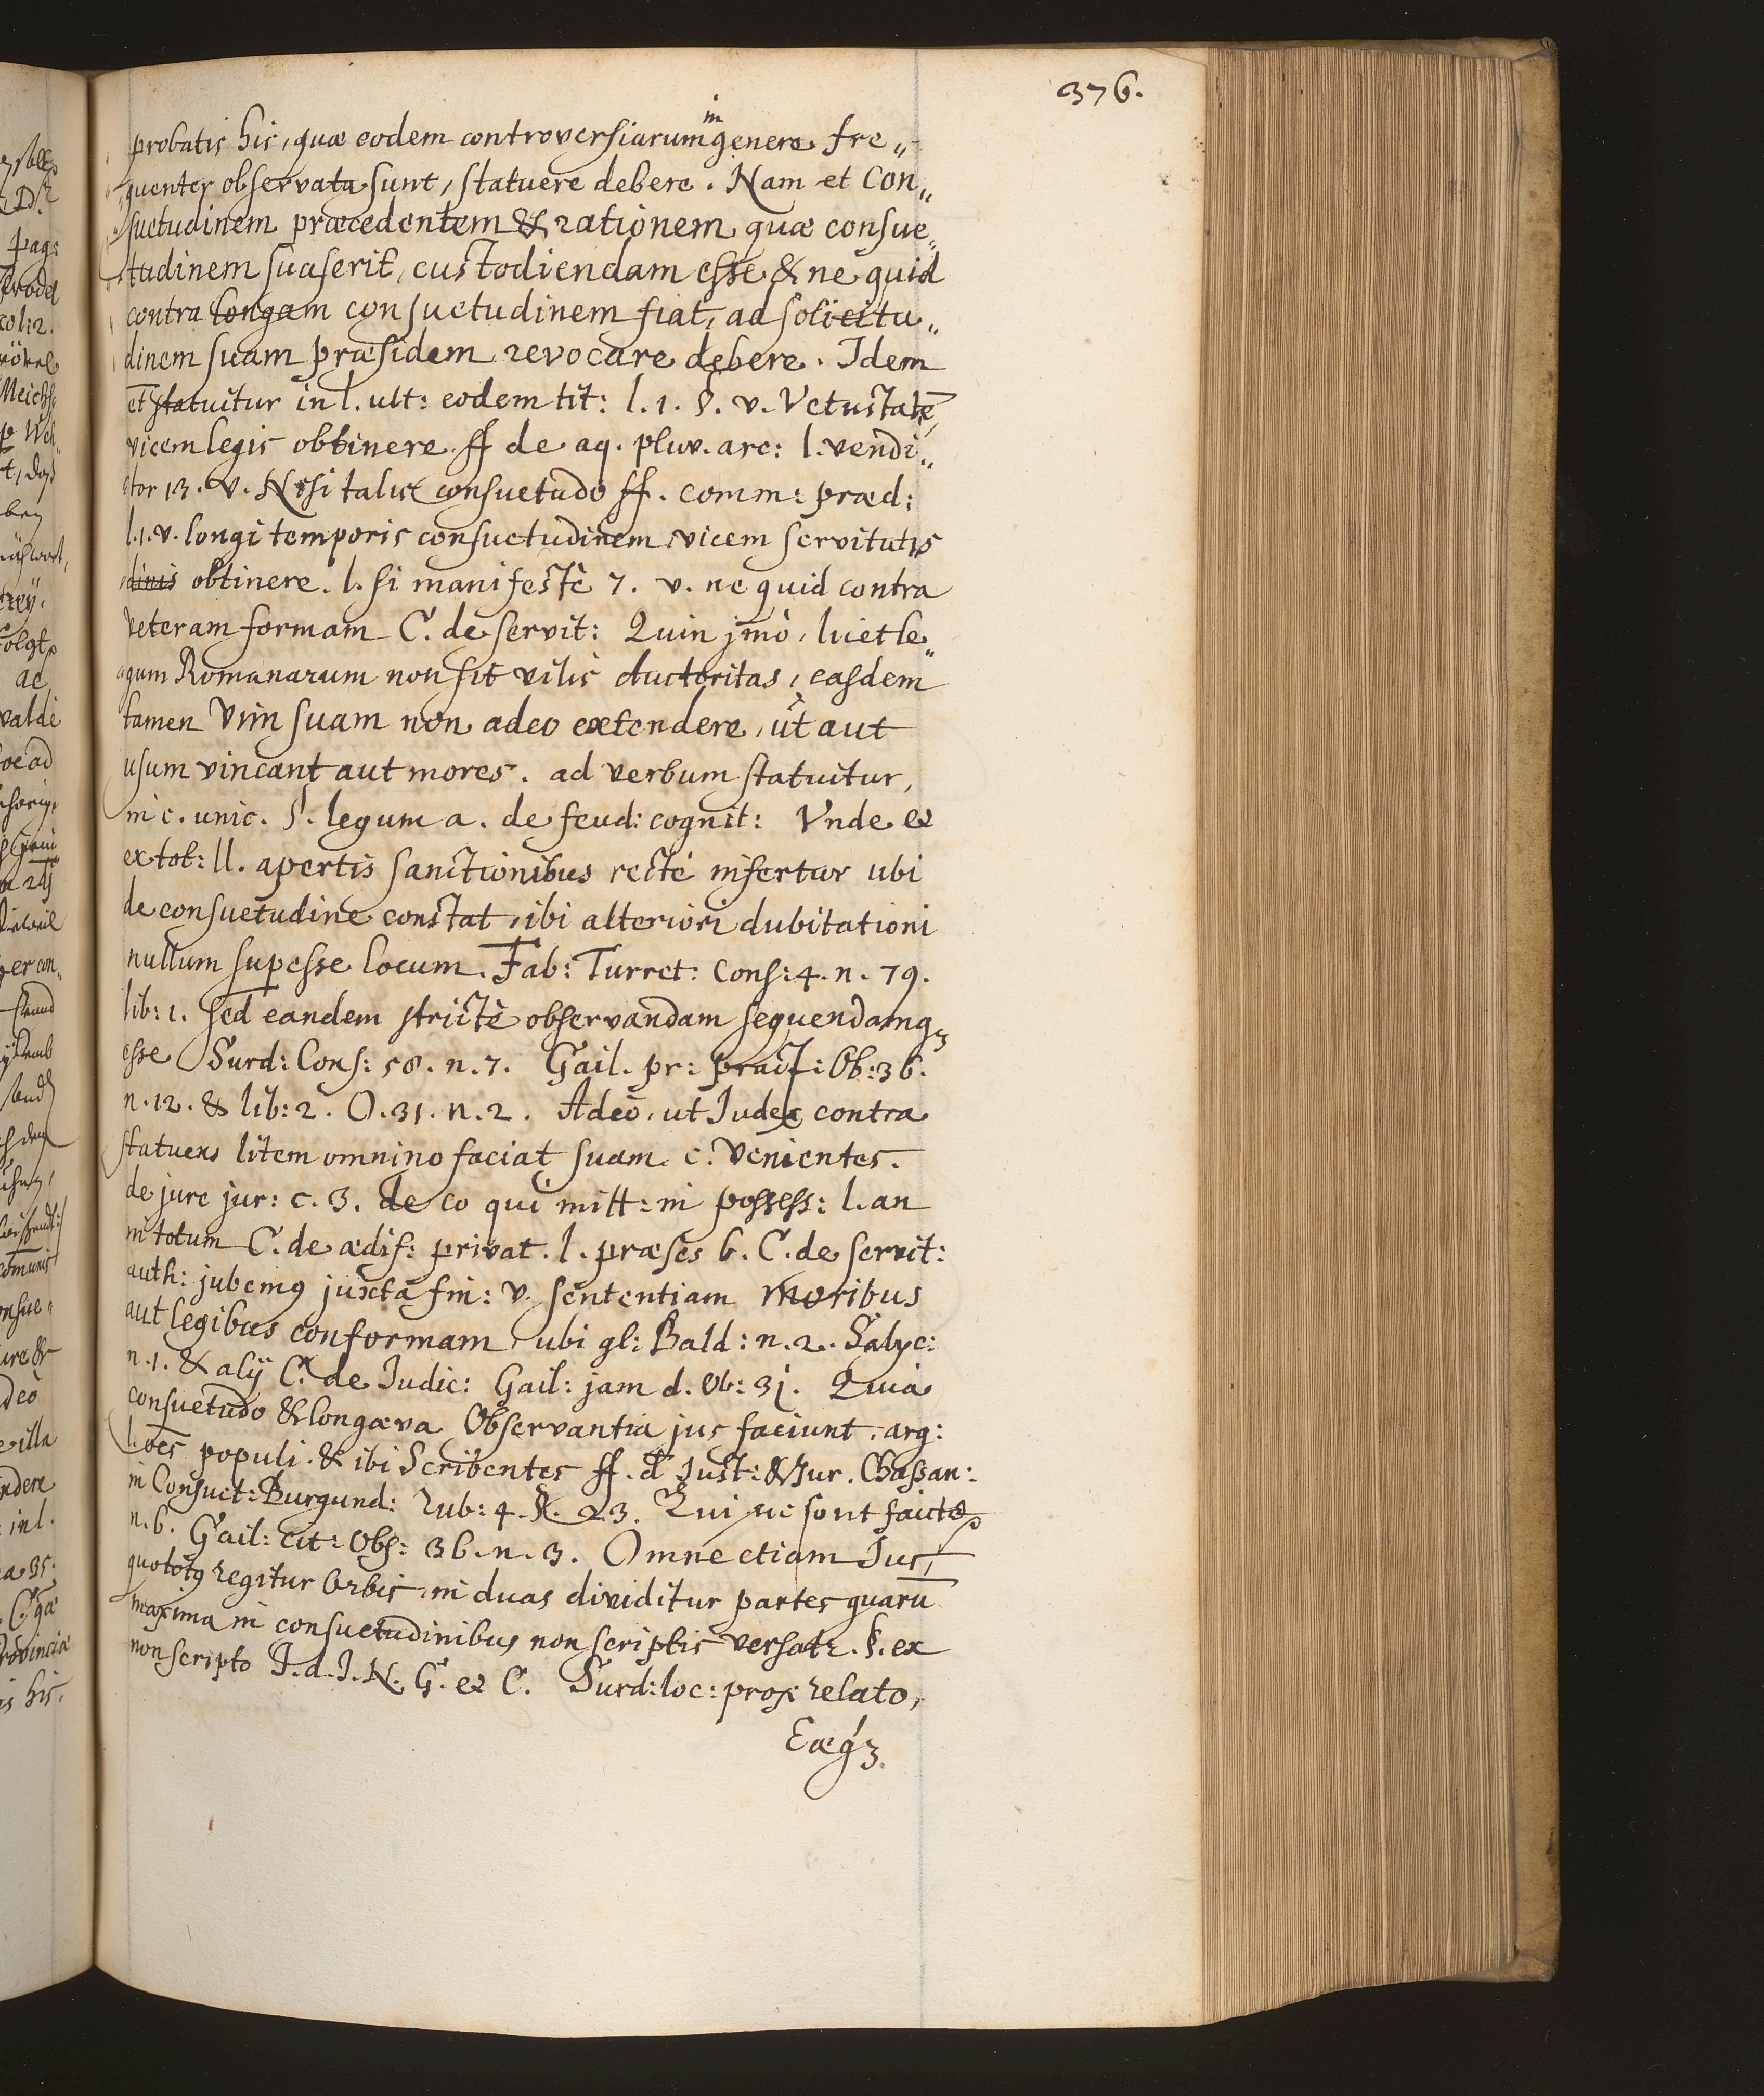 376.
in
probatis his, quæ eodem controversiarum genere fre„
quenter observata sunt, statuere debere. Nam et Con„
suetudinem præcedentem & rationem quæ consue„
tudinem suaserit, custodiendam esse & ne quid
contra longam consuetudinem fiat, ad solicitu„
dinem suam præsidem revocare debere. Idem
et statuitur in l. ult: eodem tit: l. 1. §. v. Vetustatē
vicem legis obtinere ff de aq. pluv. arc: l. vendi„
tor 13. v. Nisi talis consuetudo ff. comm: præd:
l. 1. v. longi temporis consuetudinem vicem servitutis
dinis obtinere. l. si manifestè 7. v. ne quid contra
veteram formam C. de servit: Quin jmò, licet le„
gum Romanarum non sit vilis auctoritas, easdem
tamen Vim suam non adeo extendere, ut aut
usum vincant aut mores. ad verbum statuitur,
in c. unic. §. legum a. de feud: cognit: Vnde et
ex tot: ll. apertis sanctionibus rectè infertur ubi
de consuetudine constat, ibi alteriori dubitationi
nullum supesse locum. Fab: Turret: Cons: 4. n. 79.
lib: 1. sed eandem strictè observandam sequendamq3
esse Surd: Cons: 58. n. 7. Gail. pr: pract: Ob: 36.
n. 12. & lib: 2. O. 31. n. 2. Adeò, ut Iudex contra
statuens litem omnino faciat suam. c. Venientes.
de jure jur: c. 3. de eo qui mitt: in possess: l. an
in totum C. de ædif: privat. l. præses 6. C. de servit:
auth: jubemꝰ juxta fin: v. sententiam moribus
aut legibus conformam, ubi gl: Bald: n. 2. Salyc:
n. 1. & alÿ C. de Iudic: Gail: jam d. Ob: 31. Quia
consuetudo & longæva Observantia jus faciunt. arg:
l. oēs populi. & ibi Scribentes ff. d Just: & Jur. Chassan:
in Consuet: Burgund: Rub: 4. §. 23. Qui ne sont faicts
n. 6. Gail: cit: Obs: 36. n. 3. Omne etiam Jus,
quo totꝰ regitur Orbis, in duas dividitur partes quarū
maxima in consuetudinibus non scriptis versatr. §. ex
non scripto I. d. I. N. G. et C. Surd: loc: prox relato,
Eæq3